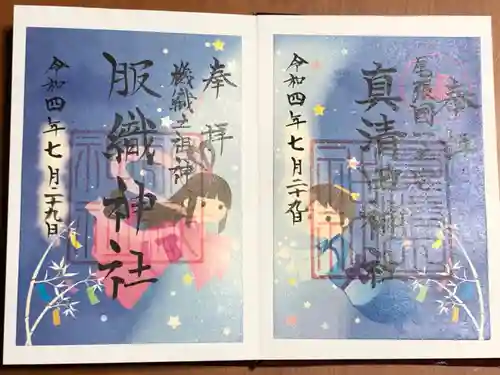 奉拝
尾張国一之宮
真清田神社
令和四年七月二十九日
奉拝
機織之祖神
服織神社
令和四年七月二十九日